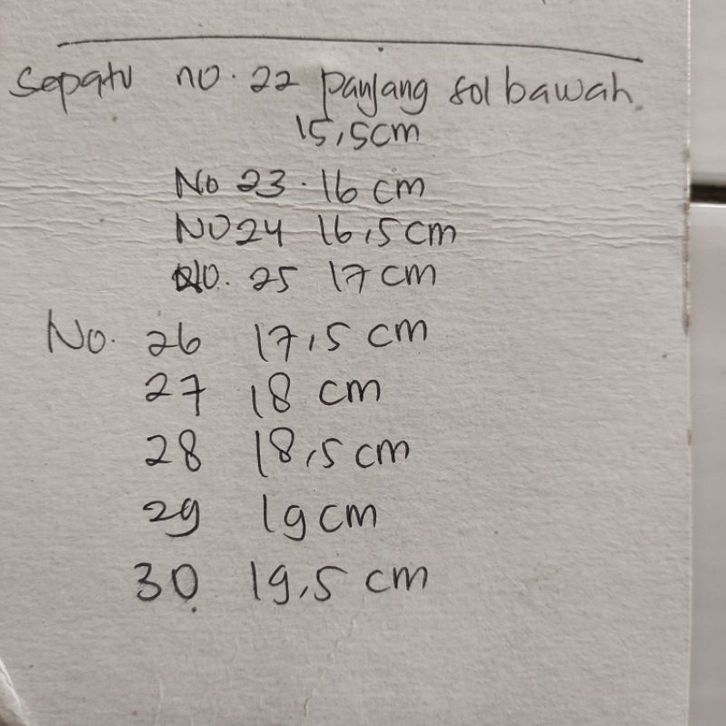 Sepatu no. 22 panjang sol bawah
15,5cm
No 23. 16 cm
NO24 16,5cm
No. 25 17 cm
No. 26 17,5 cm
27 18 cm
28 18,5 cm
29 19 cm
30 19,5 cm